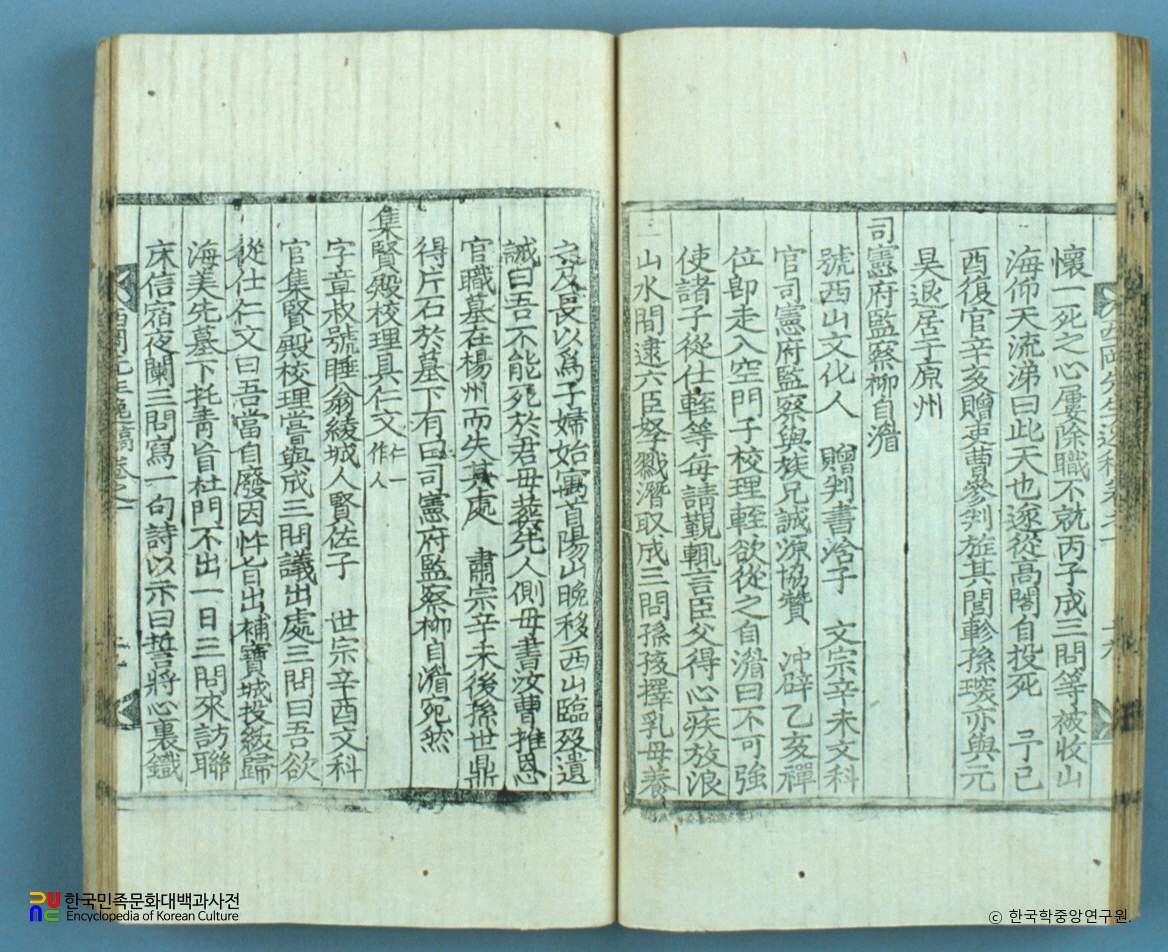 懷一死之心屢除職不就丙子成三問等被收山
海仰天流涕曰此天也遂從高閣自投死 丁巳
酉復官辛亥贈吏曹參判旌其閭軫孫瑛亦與元
昊退居于原州
司憲府監察柳自湄
號西山文化人 贈判書浛子 文宗辛未文科
官司憲府監察與族兄誠源協贊 冲辟乙亥禪
位卽走入空門子校理輊欲從之自湄曰不可強
使諸子從仕輊等每請覲輒言臣父得心疾放浪
山水間逮六臣孥戮潛取成三問孫孩擇乳母養
之及長以爲子婦始寓首陽山晚移西山臨歿遺
誡曰吾不能死於君毋葬先人側毋書汝曹推恩
官職墓在楊州而失其處 肅宗辛未後孫世鼎
得片石於墓下有曰司憲府監察柳自湄宛然
集賢殿校理具仁文 仁一作人
字章叔號睡翁綾城人賢佐子 世宗辛酉文科
官集賢殿校理嘗與成三問議出處三問曰吾欲
從仕仁文曰吾當自廢因忤旨出補寶城投紱歸
海美先墓下托靑盲杜門不出一日三問來訪聯
床信宿夜闌三問寫一句詩以示曰誓將心裏鐵
한국민족문화대백과사전
Encyclopedia of Korean Culture
© 한국학중앙연구원.